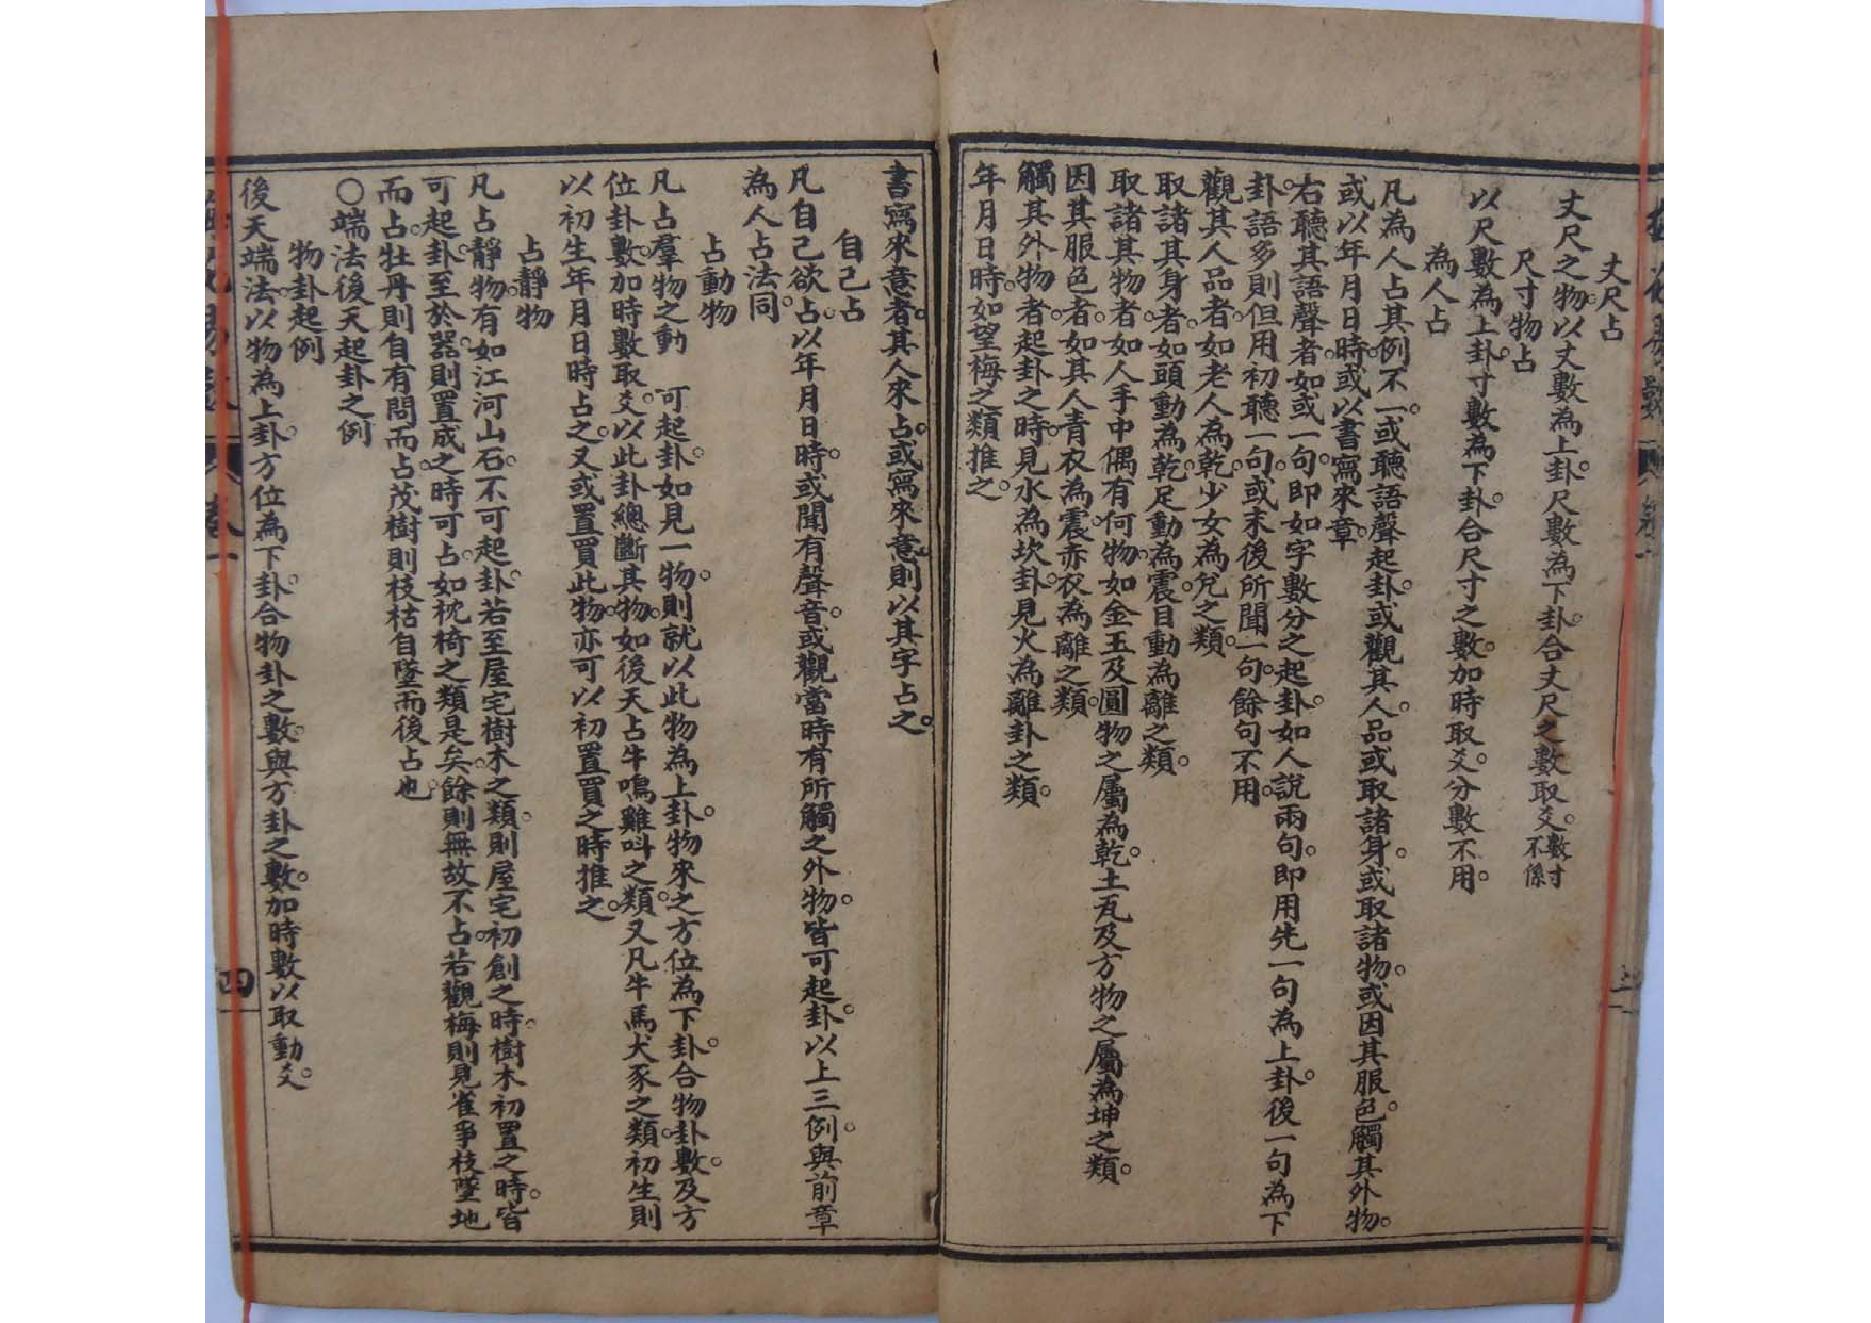 丈尺占
丈尺之物。以丈數為上卦。尺數為下卦。合丈尺之數取爻。數寸不係
尺寸物占
以尺數為上卦。寸數為下卦。合尺寸之數。加時取爻。分數不用。
為人占
凡為人占。其例不一。或聽語聲起卦。或觀其人品。或取諸身。或取諸物。或因其服色。觸其外物。
或以年月日時。或以書寫來章。
右聽其語聲者。如或一句。即如字數分之起卦。如人說兩句。即用先一句為上卦。後一句為下
卦。語多則但用初聽一句。或末後所聞一句。餘句不用。
觀其人品者。如老人為乾。少女為兌之類。
取諸其身者。如頭動為乾。足動為震。目動為離之類。
取諸其物者。如人手中偶有何物。如金玉及圓物之屬為乾。土瓦及方物之屬為坤之類。
因其服色者。如其人青衣為震。赤衣為離之類。
觸其外物者。起卦之時。見水為坎卦。見火為離卦之類。
年月日時。如望梅之類推之。
書寫來意者。其人來占。或寫來意。則以其字占之。
自己占
凡自己欲占。以年月日時。或聞有聲音。或觀當時有所觸之外物。皆可起卦。以上三例。與前章
為人占法同。
占動物
凡占羣物之動 可起卦。如見一物。則就以此物為上卦。物來之方位為下卦。合物卦數及方
位卦數加時數取爻。以此卦總斷其物。如後天占牛鳴雞叫之類。又凡牛馬犬豕之類。初生則
以初生年月日時占之。又或置買此物。亦可以初置買之時推之。
占靜物
凡占靜物。有如江河山石。不可起卦。若至屋宅樹木之類。則屋宅初創之時。樹木初置之時。皆
可起卦。至於器。則置成之時可占。如枕椅之類是矣。餘則無故不占。若觀梅則見雀爭枝墜地
而占。牡丹則自有問而占。茂樹則枝枯自墜而後占也。
〇端法後天起卦之例
物卦起例
後天端法。以物為上卦。方位為下卦。合物卦之數。與方卦之數。加時數以取動爻。
四